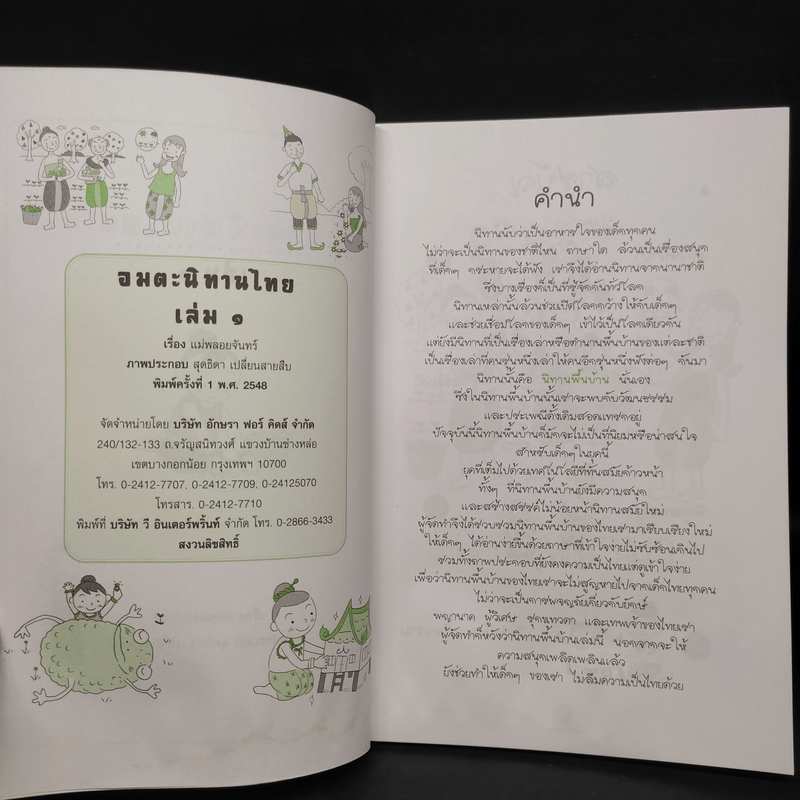 อมตะนิทานไทย
เล่ม ๑
เรื่อง แม่พลอยจันทร์
ภาพประกอบ สุดธิดา เปลี่ยนสายสืบ
พิมพ์ครั้งที่ 1 พ.ศ. 2548
จัดจำหน่ายโดย บริษัท อักษรา ฟอร์ คิดส์ จำกัด
240/132-133 ถ.จรัญสนิทวงศ์ แขวงบ้านช่างหล่อ
เขตบางกอกน้อย กรุงเทพฯ 10700
โทร. 0-2412-7707, 0-2412-7709, 0-24125070
โทรสาร. 0-2412-7710
พิมพ์ที่ บริษัท วี อินเตอร์พริ้นท์ จำกัด โทร. 0-2866-3433
สงวนลิขสิทธิ์
คำนำ
นิทานนับว่าเป็นอาหารใจของเด็กทุกคน
ไม่ว่าจะเป็นนิทานของชาติไหน ภาษาใด ล้วนเป็นเรื่องสนุก
ที่เด็กๆ กระหายจะได้ฟัง เราจึงได้อ่านนิทานจากนานาชาติ
ซึ่งบางเรื่องก็เป็นที่รู้จักกันทั่วโลก
นิทานเหล่านั้นล้วนช่วยเปิดโลกกว้างให้กับเด็กๆ
และช่วยเชื่อมโลกของเด็กๆ เข้าไว้เป็นโลกเดียวกัน
แต่ยังมีนิทานที่เป็นเรื่องเล่าหรือตำนานพื้นบ้านของแต่ละชาติ
เป็นเรื่องเล่าที่คนรุ่นหนึ่งเล่าให้คนอีกรุ่นหนึ่งฟังต่อๆ กันมา
นิทานนั้นคือ นิทานพื้นบ้าน นั่นเอง
ซึ่งในนิทานพื้นบ้านนั้นเราจะพบกับวัฒนธรรม
และประเพณีดั้งเดิมสอดแทรกอยู่
ปัจจุบันนี้นิทานพื้นบ้านก็มักจะไม่เป็นที่นิยมหรือน่าสนใจ
สำหรับเด็กๆในยุคนี้
ยุคที่เต็มไปด้วยเทคโนโลยีที่ทันสมัยก้าวหน้า
ทั้งๆ ที่นิทานพื้นบ้านยังมีความสนุก
และสร้างสรรค์ไม่น้อยหน้านิทานสมัยใหม่
ผู้จัดทำจึงได้รวบรวมนิทานพื้นบ้านของไทยเรามาเรียบเรียงใหม่
ให้เด็กๆ ได้อ่านง่ายขึ้นด้วยภาษาที่เข้าใจง่ายไม่ซับซ้อนเกินไป
รวมทั้งภาพประกอบที่ยังคงความเป็นไทยแต่ดูเข้าใจง่าย
เพื่อว่านิทานพื้นบ้านของไทยเราจะไม่สูญหายไปจากเด็กไทยทุกคน
ไม่ว่าจะเป็นการผจญภัยเกี่ยวกับยักษ์
พญานาค ผู้วิเศษ รุกขเทวดา และเทพเจ้าของไทยเรา
ผู้จัดทำก็หวังว่านิทานพื้นบ้านเล่มนี้ นอกจากจะให้
ความสนุกเพลิดเพลินแล้ว
ยังช่วยทำให้เด็กๆ ของเรา ไม่ลืมความเป็นไทยด้วย